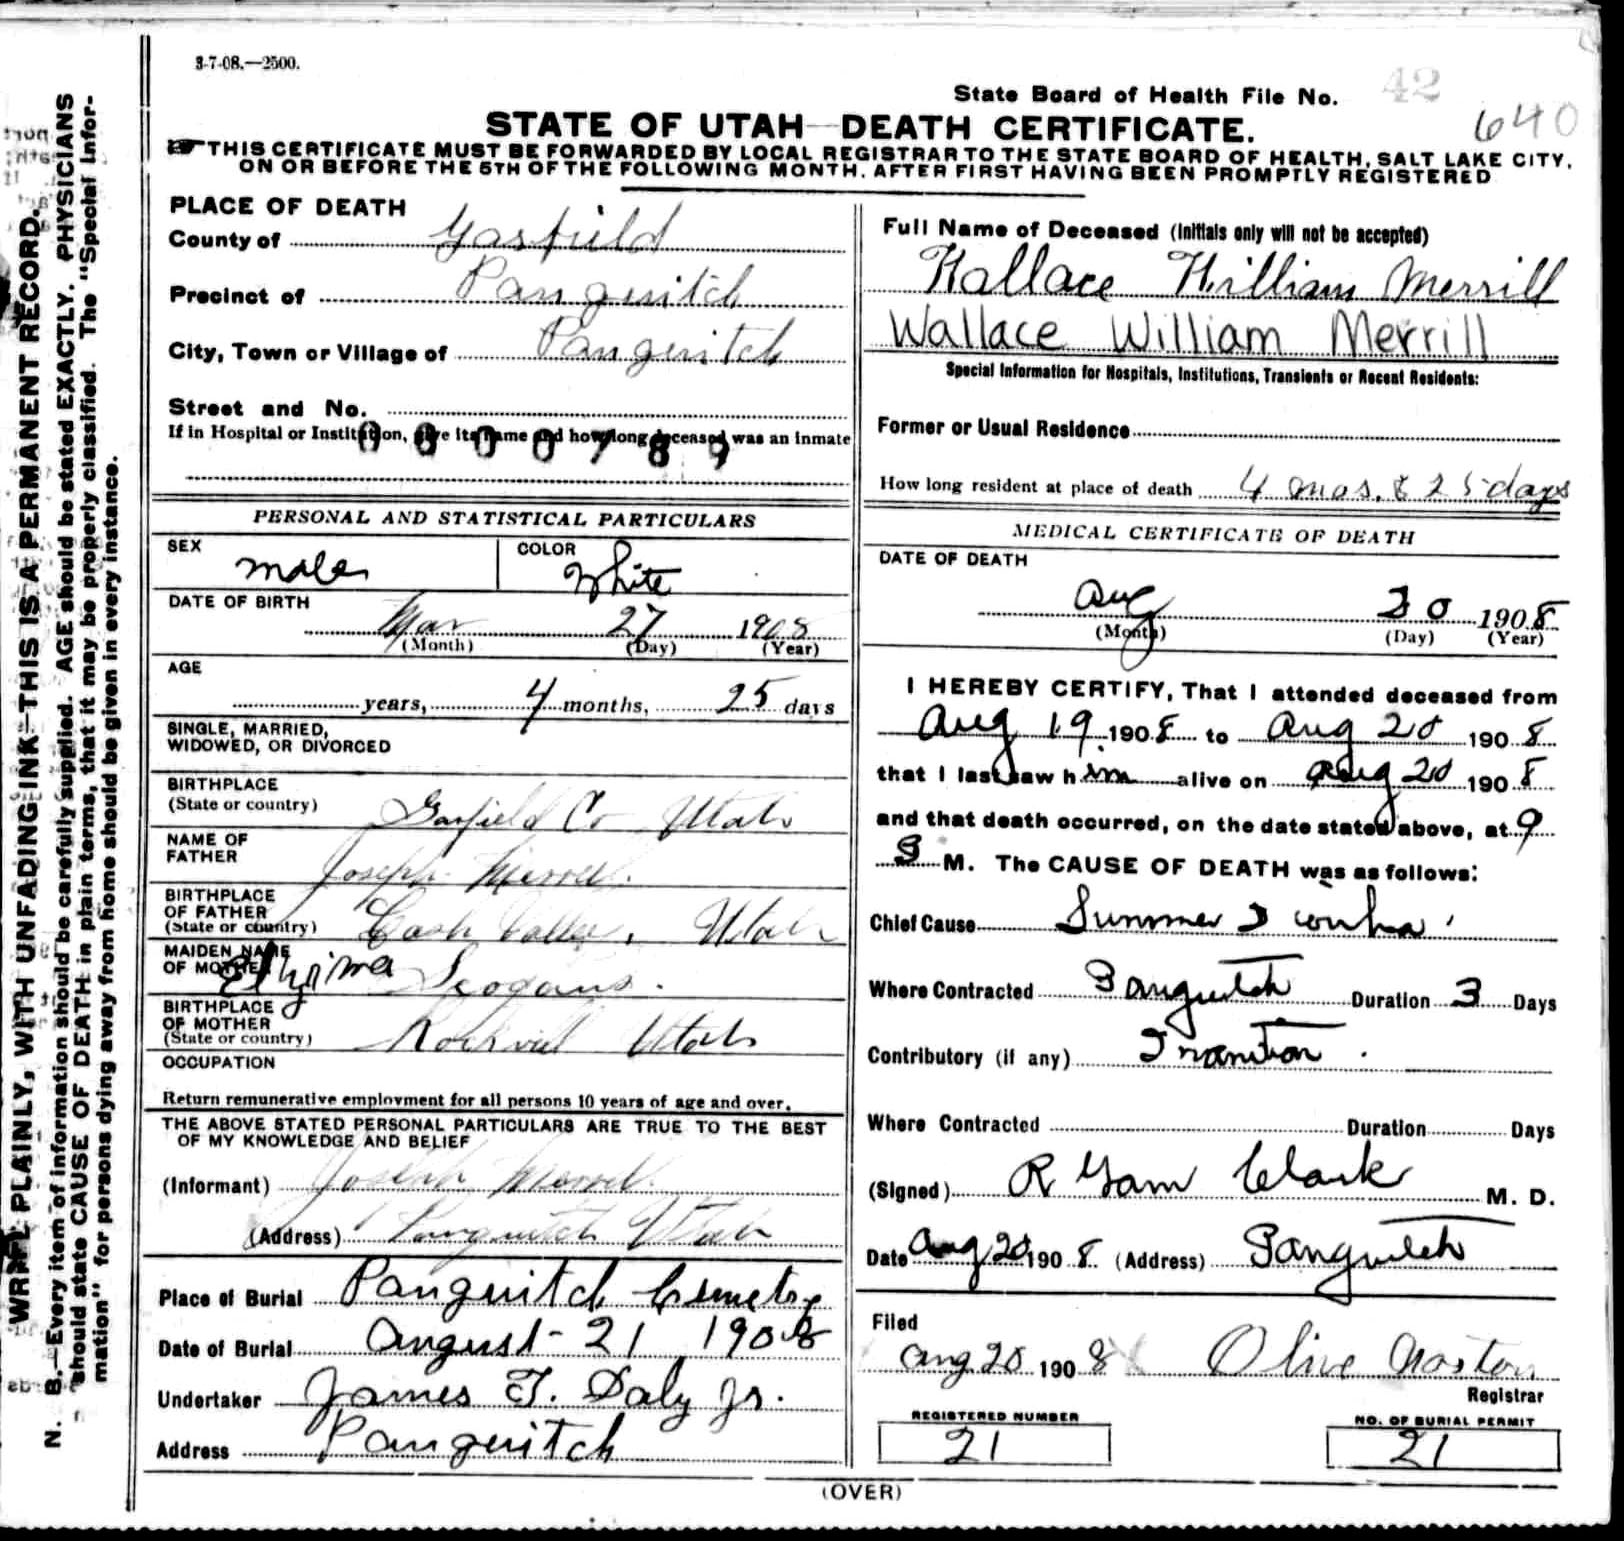 3-7-08.—2500.
State Board of Health File No. 42
640
STATE OF UTAH—DEATH CERTIFICATE.
THIS CERTIFICATE MUST BE FORWARDED BY LOCAL REGISTRAR TO THE STATE BOARD OF HEALTH, SALT LAKE CITY,
ON OR BEFORE THE 5TH OF THE FOLLOWING MONTH, AFTER FIRST HAVING BEEN PROMPTLY REGISTERED
WRITE PLAINLY, WITH UNFADING INK—THIS IS A PERMANENT RECORD.
N. B.—Every item of information should be carefully supplied. AGE should be stated EXACTLY. PHYSICIANS
should state CAUSE OF DEATH in plain terms, that it may be properly classified. The "Special Infor-
mation" for persons dying away from home should be given in every instance.
PLACE OF DEATH
County of Garfield
Precinct of Panguitch
City, Town or Village of Panguitch
Street and No.
If in Hospital or Institution, give its name and how long deceased was an inmate
PERSONAL AND STATISTICAL PARTICULARS
SEX male
COLOR White
DATE OF BIRTH
Mar 27 1908
(Month) (Day) (Year)
AGE
years, 4 months, 25 days
SINGLE, MARRIED,
WIDOWED, OR DIVORCED
BIRTHPLACE
(State or country) Garfield Co Utah
NAME OF
FATHER Joseph Merrell.
BIRTHPLACE
OF FATHER
(State or country) Cash Valley, Utah
MAIDEN NAME
OF MOTHER
BIRTHPLACE
OF MOTHER
(State or country) Rockvill Utah
OCCUPATION
Return remunerative employment for all persons 10 years of age and over.
THE ABOVE STATED PERSONAL PARTICULARS ARE TRUE TO THE BEST
OF MY KNOWLEDGE AND BELIEF
(Informant) Joseph Merrell.
(Address) Panguitch Utah
Place of Burial Panguitch Cemetry
Date of Burial August-21 1908
Undertaker James T. Daly Jr.
Address Panguitch
Full Name of Deceased (Initials only will not be accepted)
Wallace William Merrill
Wallace William Merrill
Special Information for Hospitals, Institutions, Transients or Recent Residents:
Former or Usual Residence
How long resident at place of death 4 mos. & 25 days
MEDICAL CERTIFICATE OF DEATH
DATE OF DEATH
Aug 20 1908
(Month) (Day) (Year)
I HEREBY CERTIFY, That I attended deceased from
Aug 19 1908 to Aug 20 1908
that I last saw him alive on Aug 20 1908
and that death occurred, on the date stated above, at 9
M. The CAUSE OF DEATH was as follows:
Chief Cause Summer
Where Contracted Panguitch Duration 3 Days
Contributory (if any) Inanition.
Where Contracted Duration Days
(Signed) R Garn Clark M. D.
Date Aug 20 1908 (Address) Panguitch
Filed
Aug 20 1908 Olive
Registrar
REGISTERED NUMBER
21
NO. OF BURIAL PERMIT
21
(OVER)